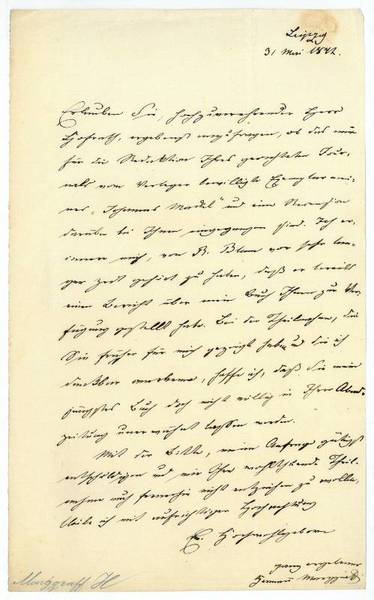 Leipzig
31 Mai 1842.
Erlauben Sie, hochzuverehrender Herr
Hofrath, ergebenst anzufragen, ob das
für die Redaktion Ihres geehrten Jour-
nals vom Verleger bewilligte Exemplar mei-
nes „Johannes Mackel“ und eine Recension
darüber bei Ihnen eingegangen sind. Ich er-
innere mich, von R. Blum vor sehr lan-
ger Zeit gehört zu haben, daß er bereits
einen Bericht über mein Buch Ihnen zur Ver-
fügung gestellt habe. Bei der Theilnahme, die
Sie früher für mich gezeigt haben, und die ich
dankbar anerkenne, hoffe ich, daß Sie mein
jüngstes Buch doch nicht völlig in Ihrer Abend-
zeitung unerwähnt lassen werden.
Mit der Bitte, meine Anfrage gütigst
entschuldigen und mir Ihre wohlwollende Theil-
nahme auch fernerhin nicht entziehen zu wollen,
bleibe ich mit aufrichtiger Hochachtung
Ew. Hochwohlgeboren
ganz ergebener
Hermann Marggraff
Marggraff H